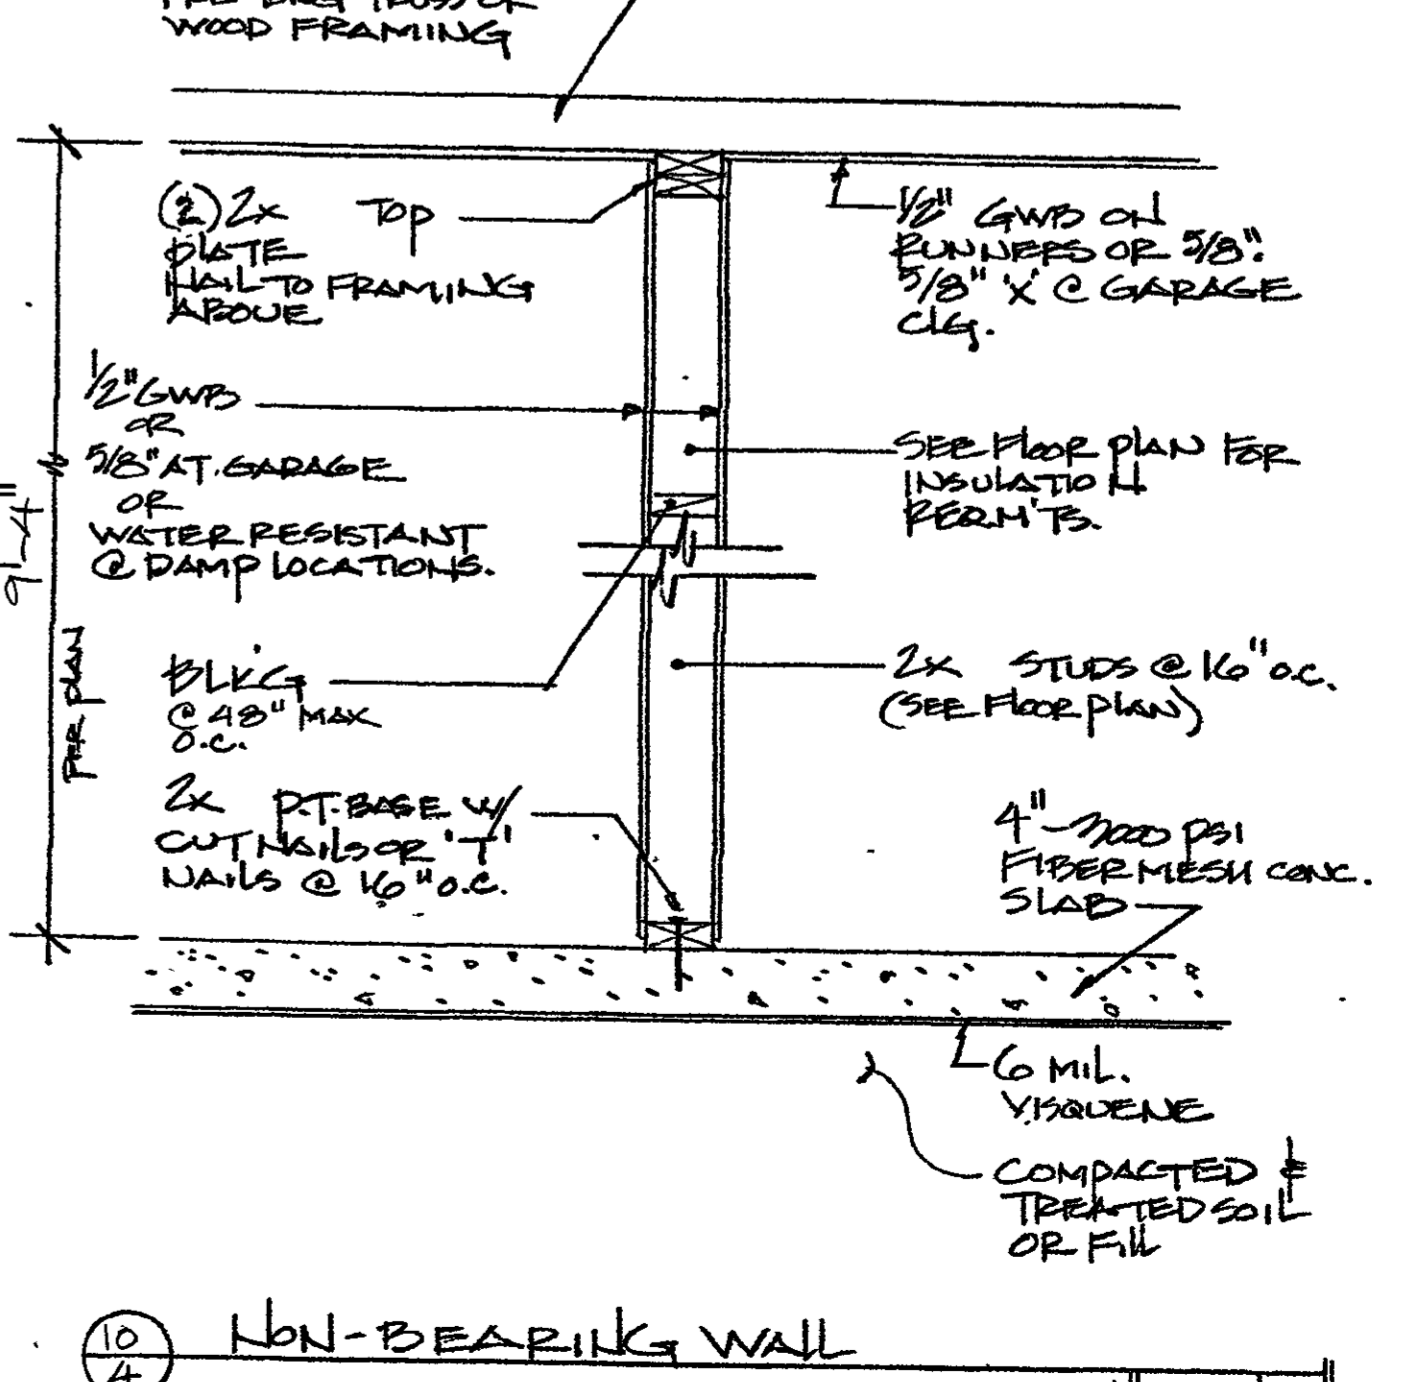 WOOD FRAMING
(2) 2x TOP
PLATE
NAIL TO FRAMING
ABOVE
1/2" GWB ON
RUNNERS OR 5/8".
5/8" 'X' @ GARAGE
CLG.
1/2" GWB
OR
5/8" AT. GARAGE
OR
WATER RESISTANT
@ DAMP LOCATIONS.
SEE FLOOR PLAN FOR
INSULATION
REQM'TS.
9'-4"
PER PLAN
BLK'G
@ 48" MAX
O.C.
2x STUDS @ 16" O.C.
(SEE FLOOR PLAN)
2x P.T. BASE W/
CUT NAILS OR 'T'
NAILS @ 16" O.C.
4"-3000 PSI
FIBERMESH CONC.
SLAB
6 MIL.
VISQUENE
COMPACTED &
TREATED SOIL
OR FILL
10
4
NON-BEARING WALL